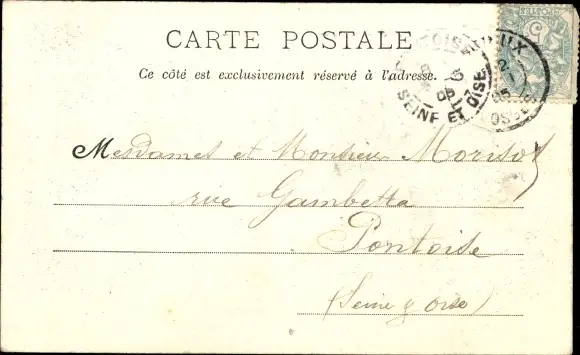 CARTE POSTALE
Ce côté est exclusivement réservé à l'adresse.
SEINE ET OISE
Mesdames et Monsieur
rue Gambetta
Pontoise
(Seine & Oise)